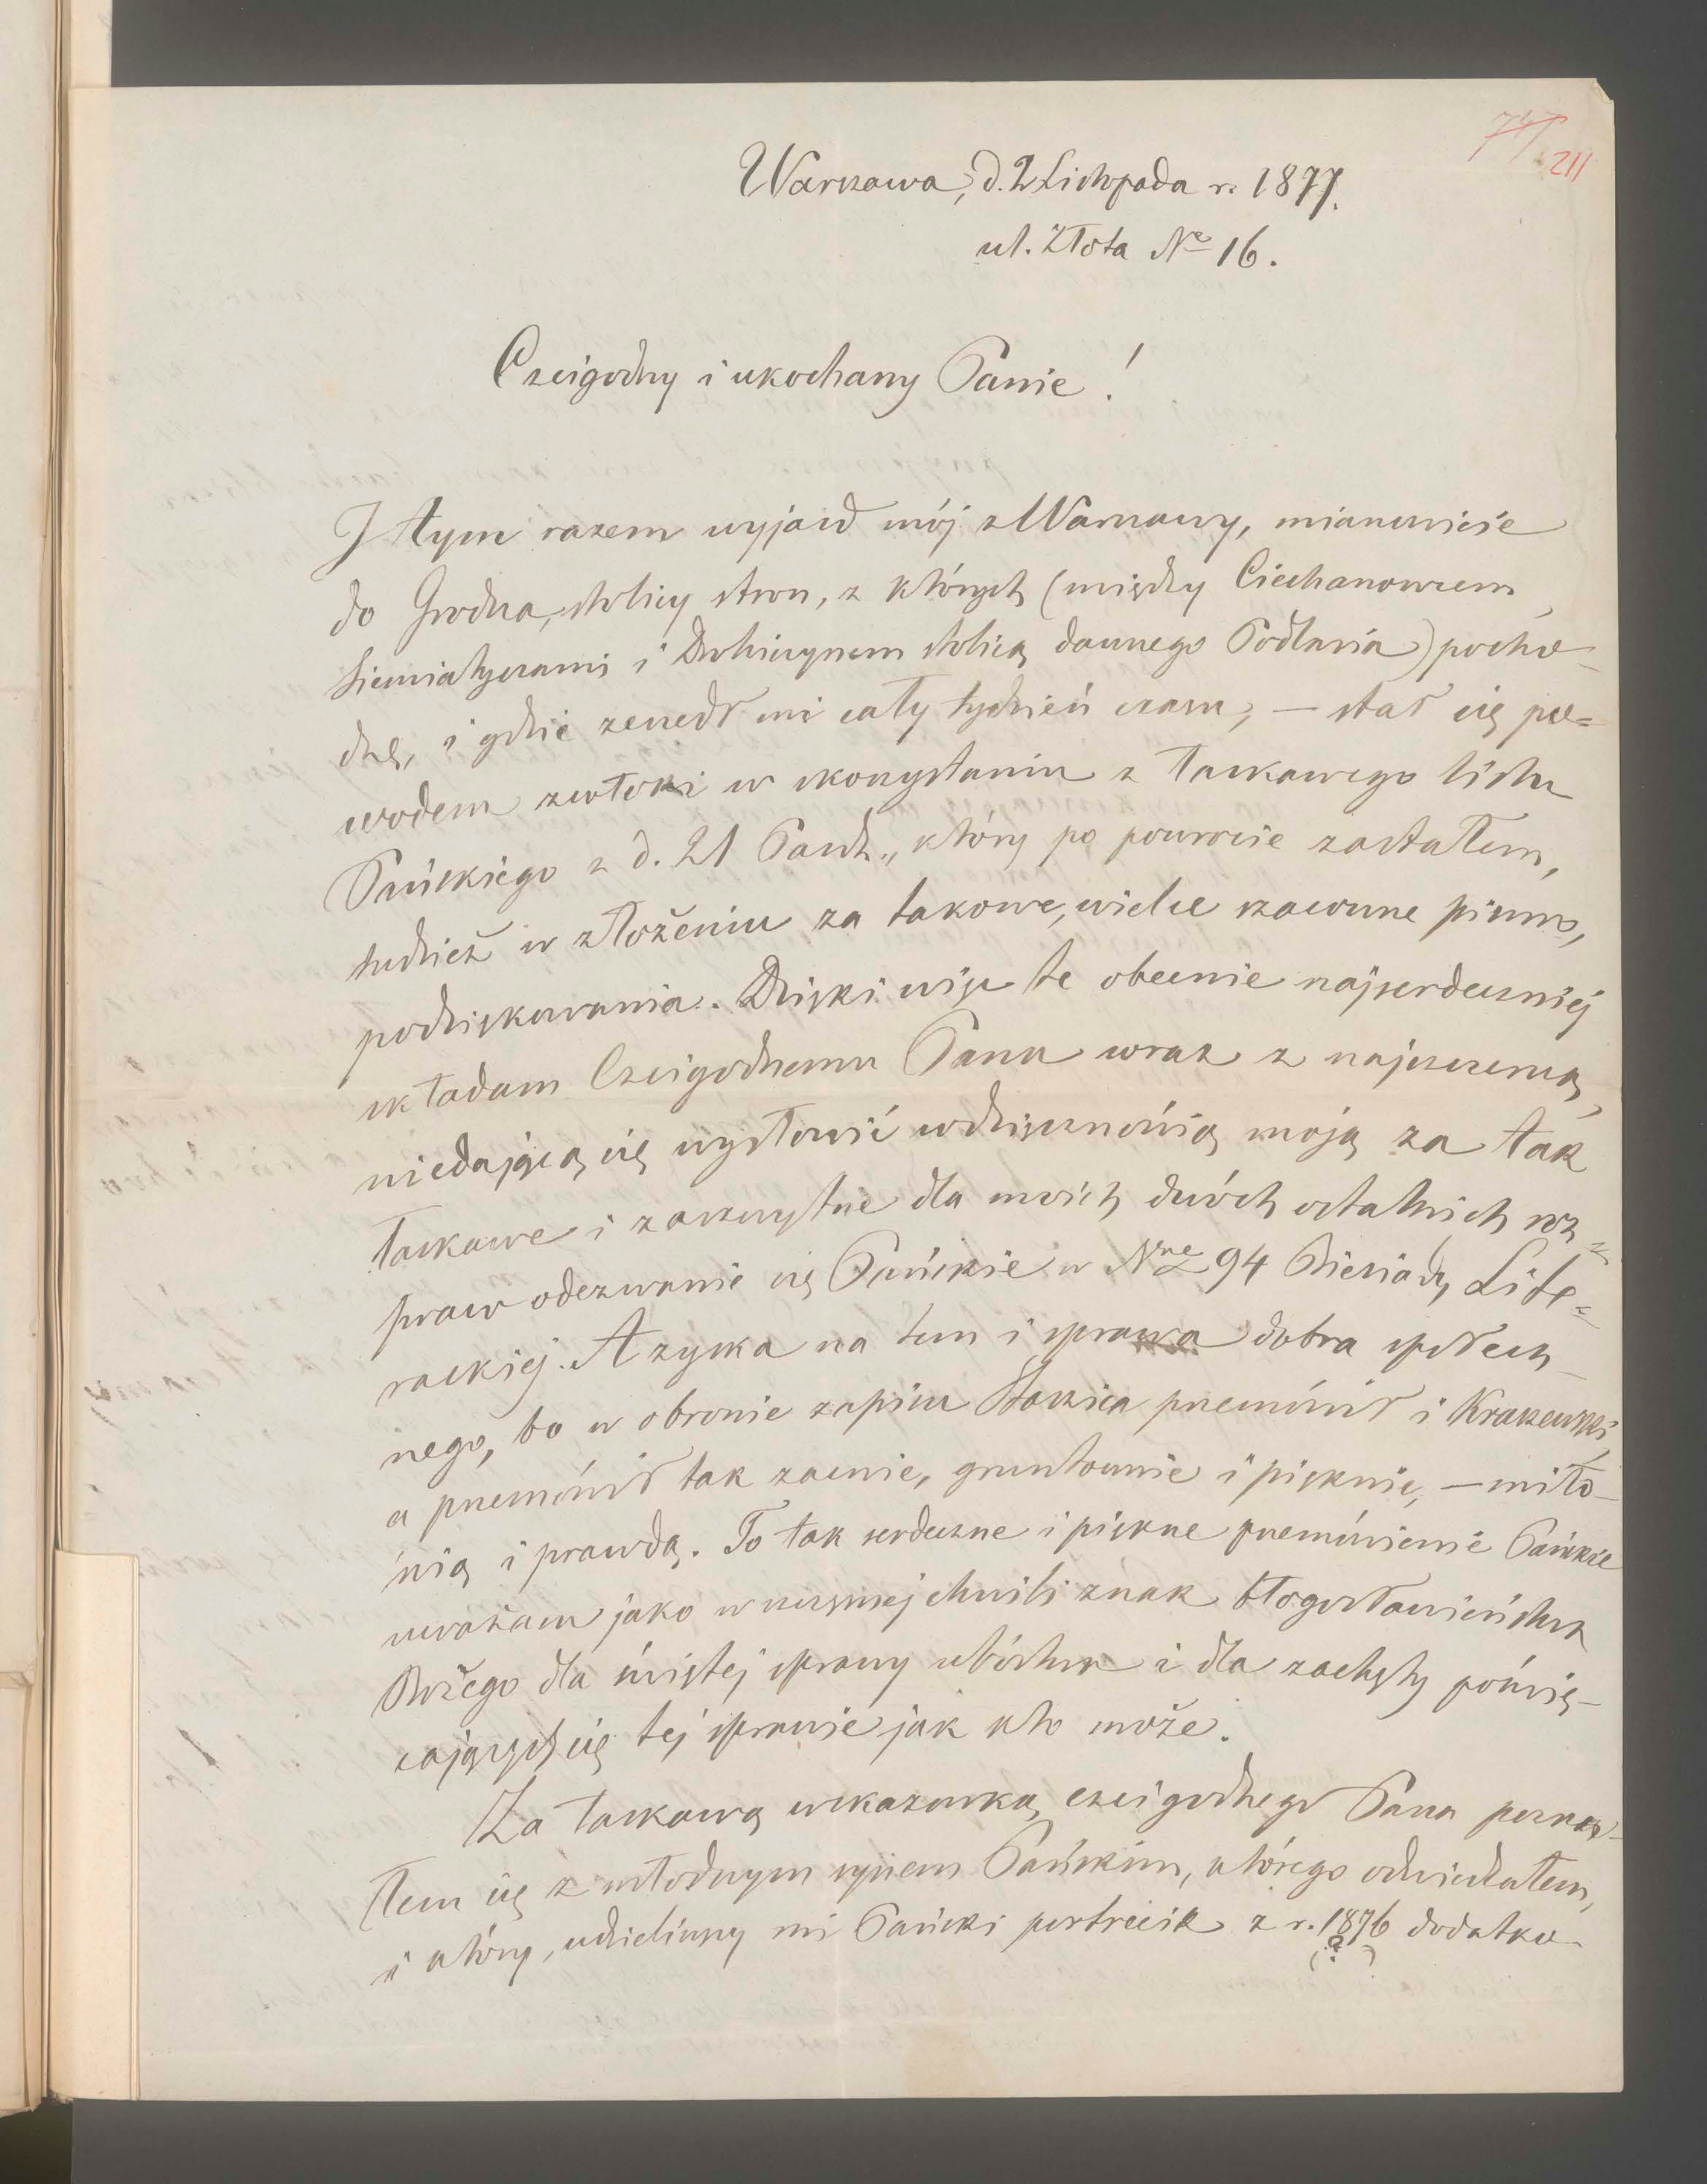 747 211
Warszawa, d. 2 Listopada r. 1877.
ul. Złota № 16.
Czcigodny i ukochany Panie!
I tym razem wyjazd mój z Warszawy, mianowicie
do Grodna, stolicy stron, z których (między Ciechanowcem,
Siemiatyczami i Drohiczynem stolicą dawnego Podlasia) pocho-
dzę, i gdzie zeszedł mi cały tydzień czasu, — stał się po=
wodem zwłoki w skorzystaniu z łaskawego listu
Pańskiego z d. 21 Paźdz., który po powrocie zastałem,
tudzież w złożeniu za takowe, wielce szacowne pismo,
podziękowania. Dzięki więc te obecnie najserdeczniej
składam Czcigodnemu Panu wraz z najszczerszą,
niedającą się wysłowić wdzięcznością moją za tak
łaskawe i zaszczytne dla moich dwóch ostatnich roz=
praw odezwanie się Pańskie w Nrze 94 Biesiady Lite=
rackiej. A zyska na tem i sprawa dobra społecz-
nego, bo w obronie zapisu Staszica przemówił i Kraszewski,
a przemówił tak zacnie, gruntownie i pięknie, — miło-
ścią i prawdą. To tak serdeczne i piękne przemówienie Pańskie
uważam jako w szczęsnej chwili znak błogosławieństwa
Bożego dla świętej sprawy ubóstwa i dla zachęty poświę-
cających się tej sprawie jak kto może.
Za łaskawą wskazówką czcigodnego Pana pozna-
łem się z młodszym synem Pańskim, którego odwiedzałem,
i który, udzieliwszy mi Pański portrecik z r. 1876 dodatko-
(?)